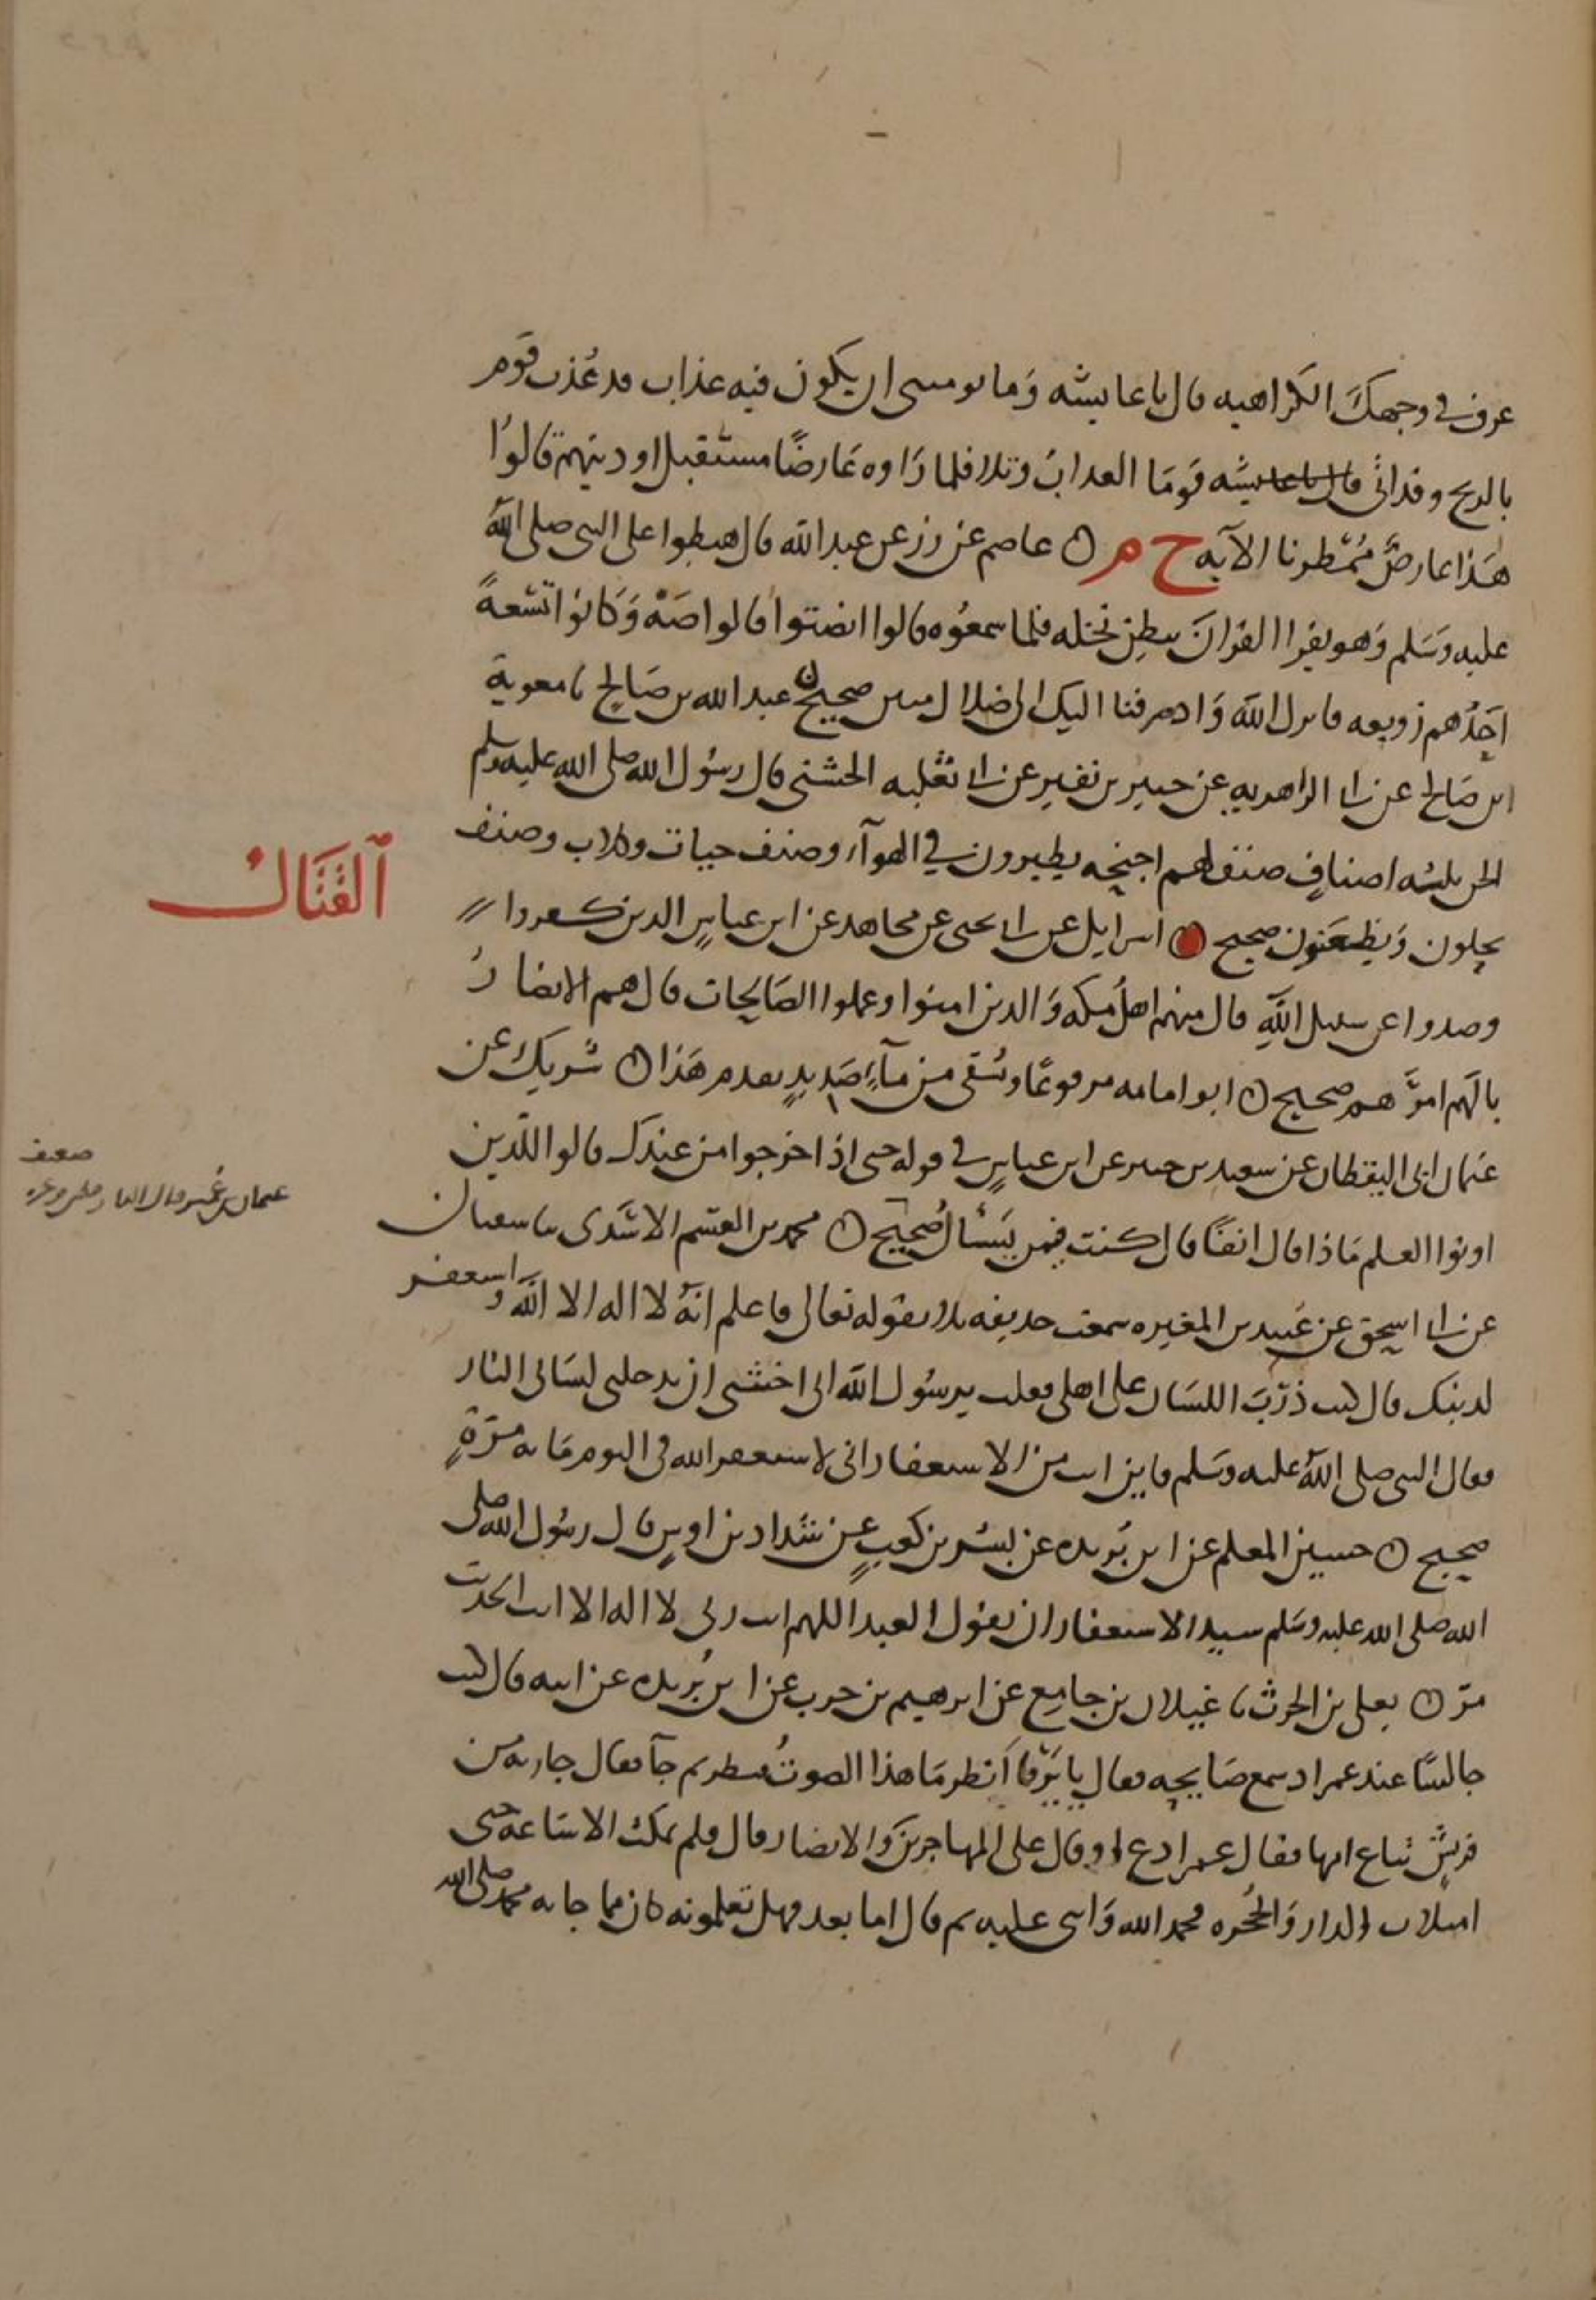 عرف في وجهك الكراهيه قال يا عايشه وما يومنني ان يكون فيه عذاب قد عُذب قوم
بالريح وقد اتى قال يا عايشه قومًا العذابُ وتلا فلما رَاوه عَارضًا مستقبل اوديتهم قالوُا
هَذا عارضٌ مُمْطرنا الآيه خ م ن عاصم عن زر عن عبد الله قال هبطوا على النبي صلى الله
عليه وَسَلم وَهو يقرا القرانَ ببطن نخله فلما سمعُوه قالوا انصتوا قالوا صَهْ وَكانوا تسْعةً
احَدُهم زوبعه فانزل الله وَاذ صرفنا اليك الى ضلال مبين صحيح ن عبد الله بن صَالح نا معوية
ابن صَالح عن ابي الزاهريه عن جبير بن نفير عن ابي ثعْلبه الخشني قال رسُول الله صلى الله عليه وسلم
الجن ثلثه اصنافٍ صنف لهم اجنحه يطيرون في الهوآء وصنف حيات وكلاب وصنف
يحلون وَيظعَنون صحيح ن اسرايل عن ابي يحيى عن مجاهد عن ابن عباسٍ الذين كفروا
وصدوا عن سبيل اللهِ قال منهم اهلُ مكه وَالذين امنوا وعملوا الصَالحات قال هم الانصارُ
بالَهم امرَهم صحيح ن ابو امامه مرفوعًا وتسْقى من مآءٍ صَديدٍ تقدم هَذا ن شريك عن
عثمان ابي اليقظان عن سعيد بن جبير عن ابن عباسٍ في قوله حتى اذا خرجوا من عندك قالوا للذين
اوتوا العلم مَاذا قال انفًا قال كنت فيمن يَسْأل صحيح ن محمد بن القسم الاسَدى نا سفيان
عن ابي اسحق عن عُبيد بن المغيره سمعت حذيفه تلا قوله تعالى فاعلم انهُ لا اله الا الله واستغفر
لذنبك قال كنت ذَرِبَ اللسَان على اهلى فقلت يرسُول الله انى اخشى ان يدخلنى لسَانى النار
فقال النبي صلى الله عليه وسَلم فاين انت من الاستغفار انى لاستغفر الله في اليوم مَايه مرّةٍ
صحيح ن حسين المعلم عن ابن بُريده عن بشير بن كعبٍ عن شداد بن اوسٍ قال رسُول الله صلى
الله صلى الله عليه وسَلم سيد الاستغفار ان يقول العبد اللهم انت ربى لا اله الا انت الحديث
مرّ ن يعلى بن الحرث نا غيلان بن جامع عن ابرهيم بن حرب عن ابن بُريده عن ابيه قال كنت
جالسًا عند عمر اذ سمع صَايحه فقال يا يَرْفا اَنظر مَا هذا الصوتُ فنظر ثم جآ فقال جاريه من
قريش تباع امها فقال عمر ادع لى او قال على المهاجرين وَالانصار قال فلم يمكث الا سَاعة حتى
امتلات الدار وَالحُجره فحمد الله وَاثنى عليه ثم قال اما بعد فهل تعلمونه كان مما جا به محمد صلى الله
اَلقتَال
ضعيف